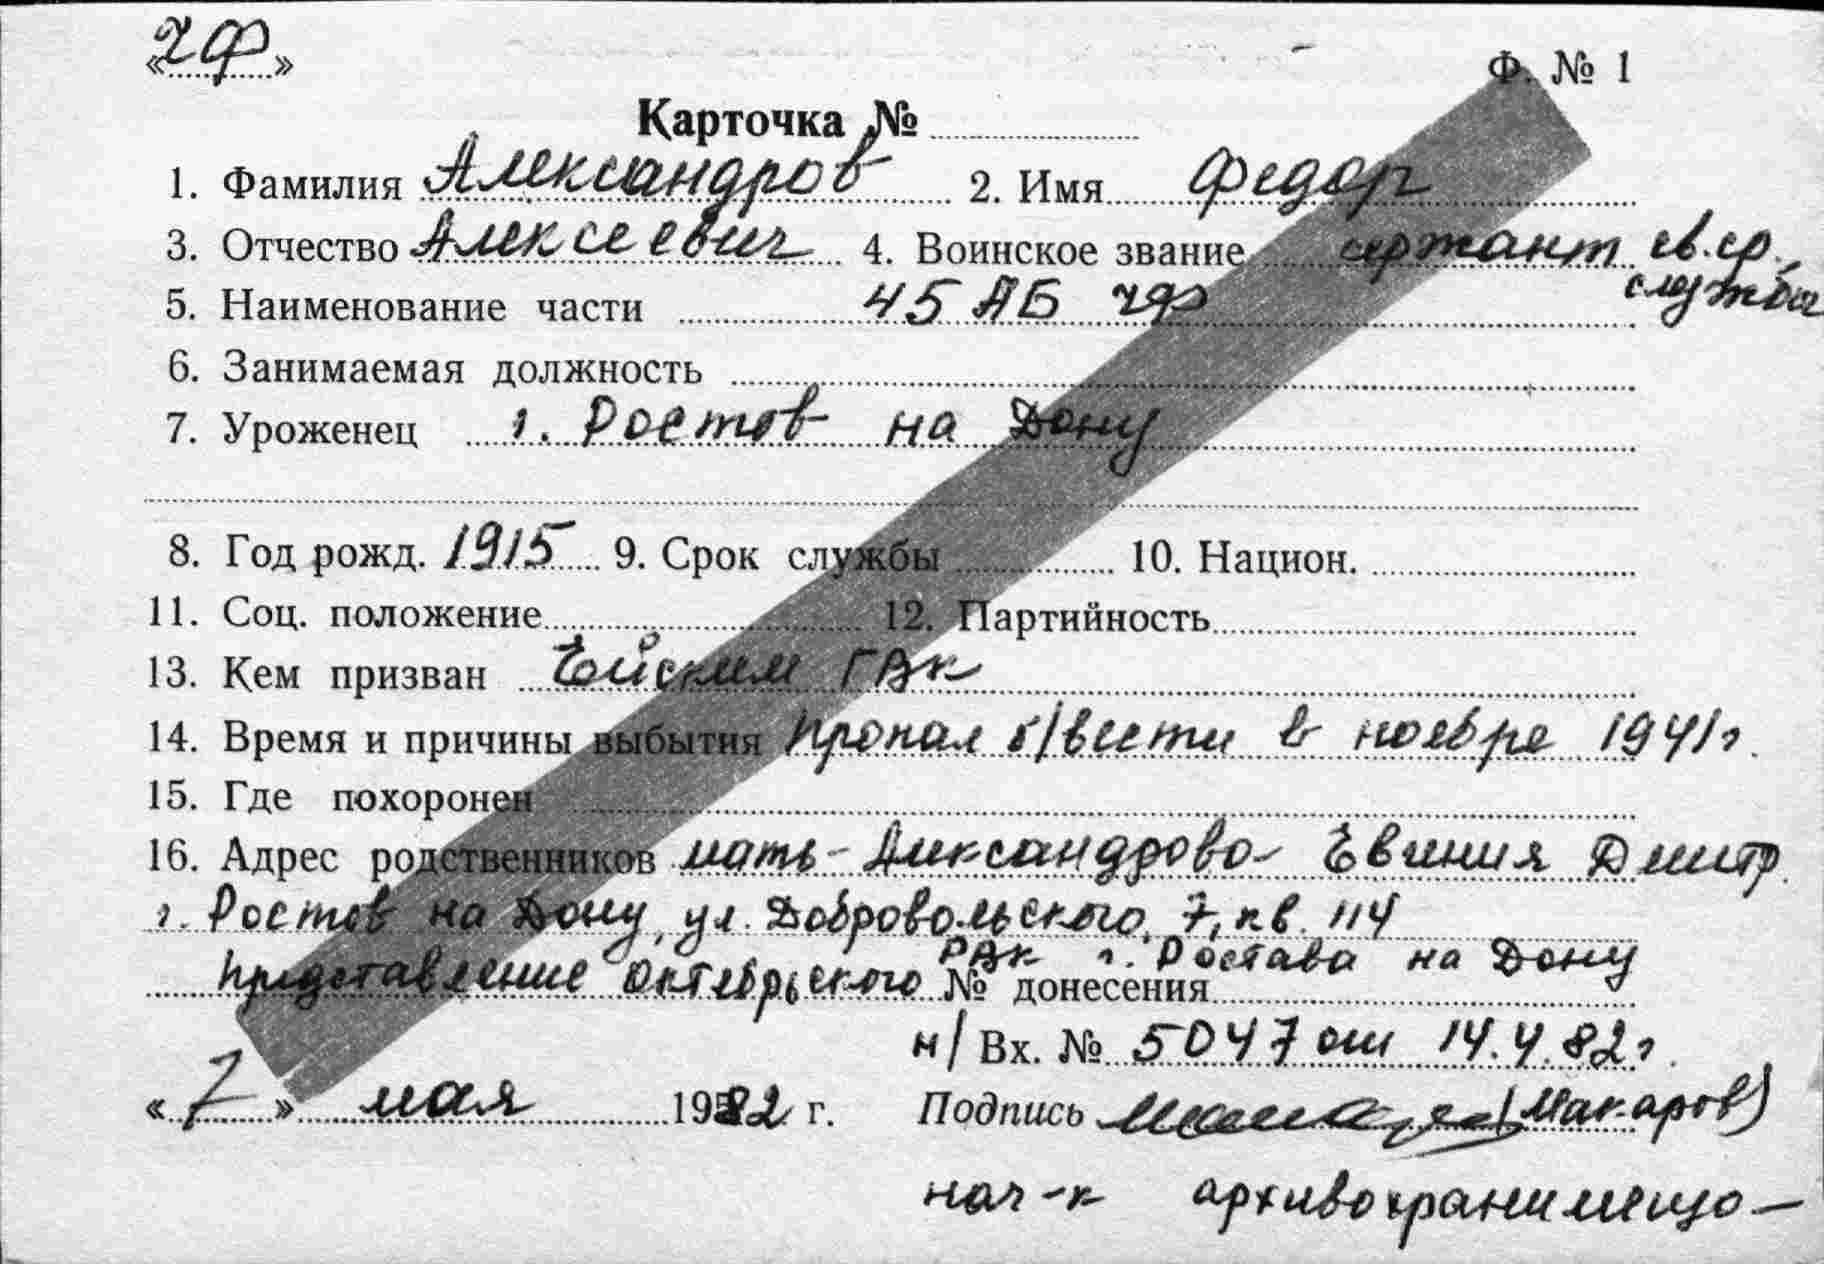 «ЧФ»
Ф. № 1
Карточка №
1. Фамилия Александров 2. Имя Федор
3. Отчество Алексеевич 4. Воинское звание сержант св.ср. службы
5. Наименование части 45 АБ ЧФ
6. Занимаемая должность
7. Уроженец г. Ростов на Дону
8. Год рожд. 1915 9. Срок службы 10. Национ.
11. Соц. положение 12. Партийность
13. Кем призван Ейским ГВК
14. Время и причины выбытия пропал б/вести в ноябре 1941 г.
15. Где похоронен
16. Адрес родственников мать - Александрова Евгения Дмитр.
г. Ростов на Дону, ул. Добровольского, 7, кв. 114
Представление Октябрьского РВК г. Ростова на Дону
№ донесения
н/Вх. № 5047 от 14.4.82 г.
«7» мая 1982 г. Подпись (Макаров)
нач-к архивохранилища